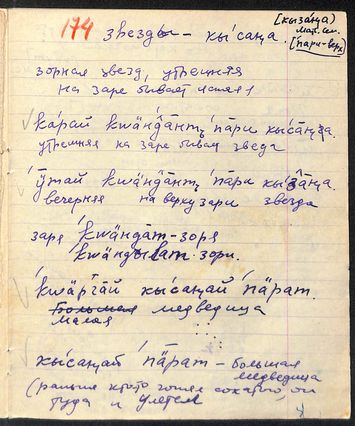 174 звезды – кы́саӈа. (кыза́ӈа)
мал. сп.
(па́ри - верх)
зорная звезд, утрешняя
на заре бывает
ка́рай кwа́нд̂а̄нтӡ па́ри кы́са̄ӈга.
утрешняя на заре бывая звезда
ӱ́тай кwа́нд̂а̄нтӡ па́ри кы́з̂а̄ӈа.
вечерняя на верху зари звезда
заря кwӓнд̂ат - зоря
кwӓндыlат - зори.
кwӓрг̆ай кы́саӈай 'пӓрат.
медведица
малая
кы́саӈай 'пӓрат - большая
медведица
(раньше кто-то гонял сохатого, он
туда и улетел